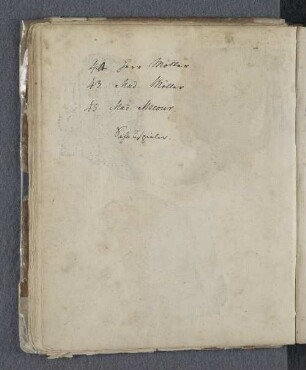 42 Herr Möller
43 Mad. Möller
45 Mad. Mecour
Schauspieler